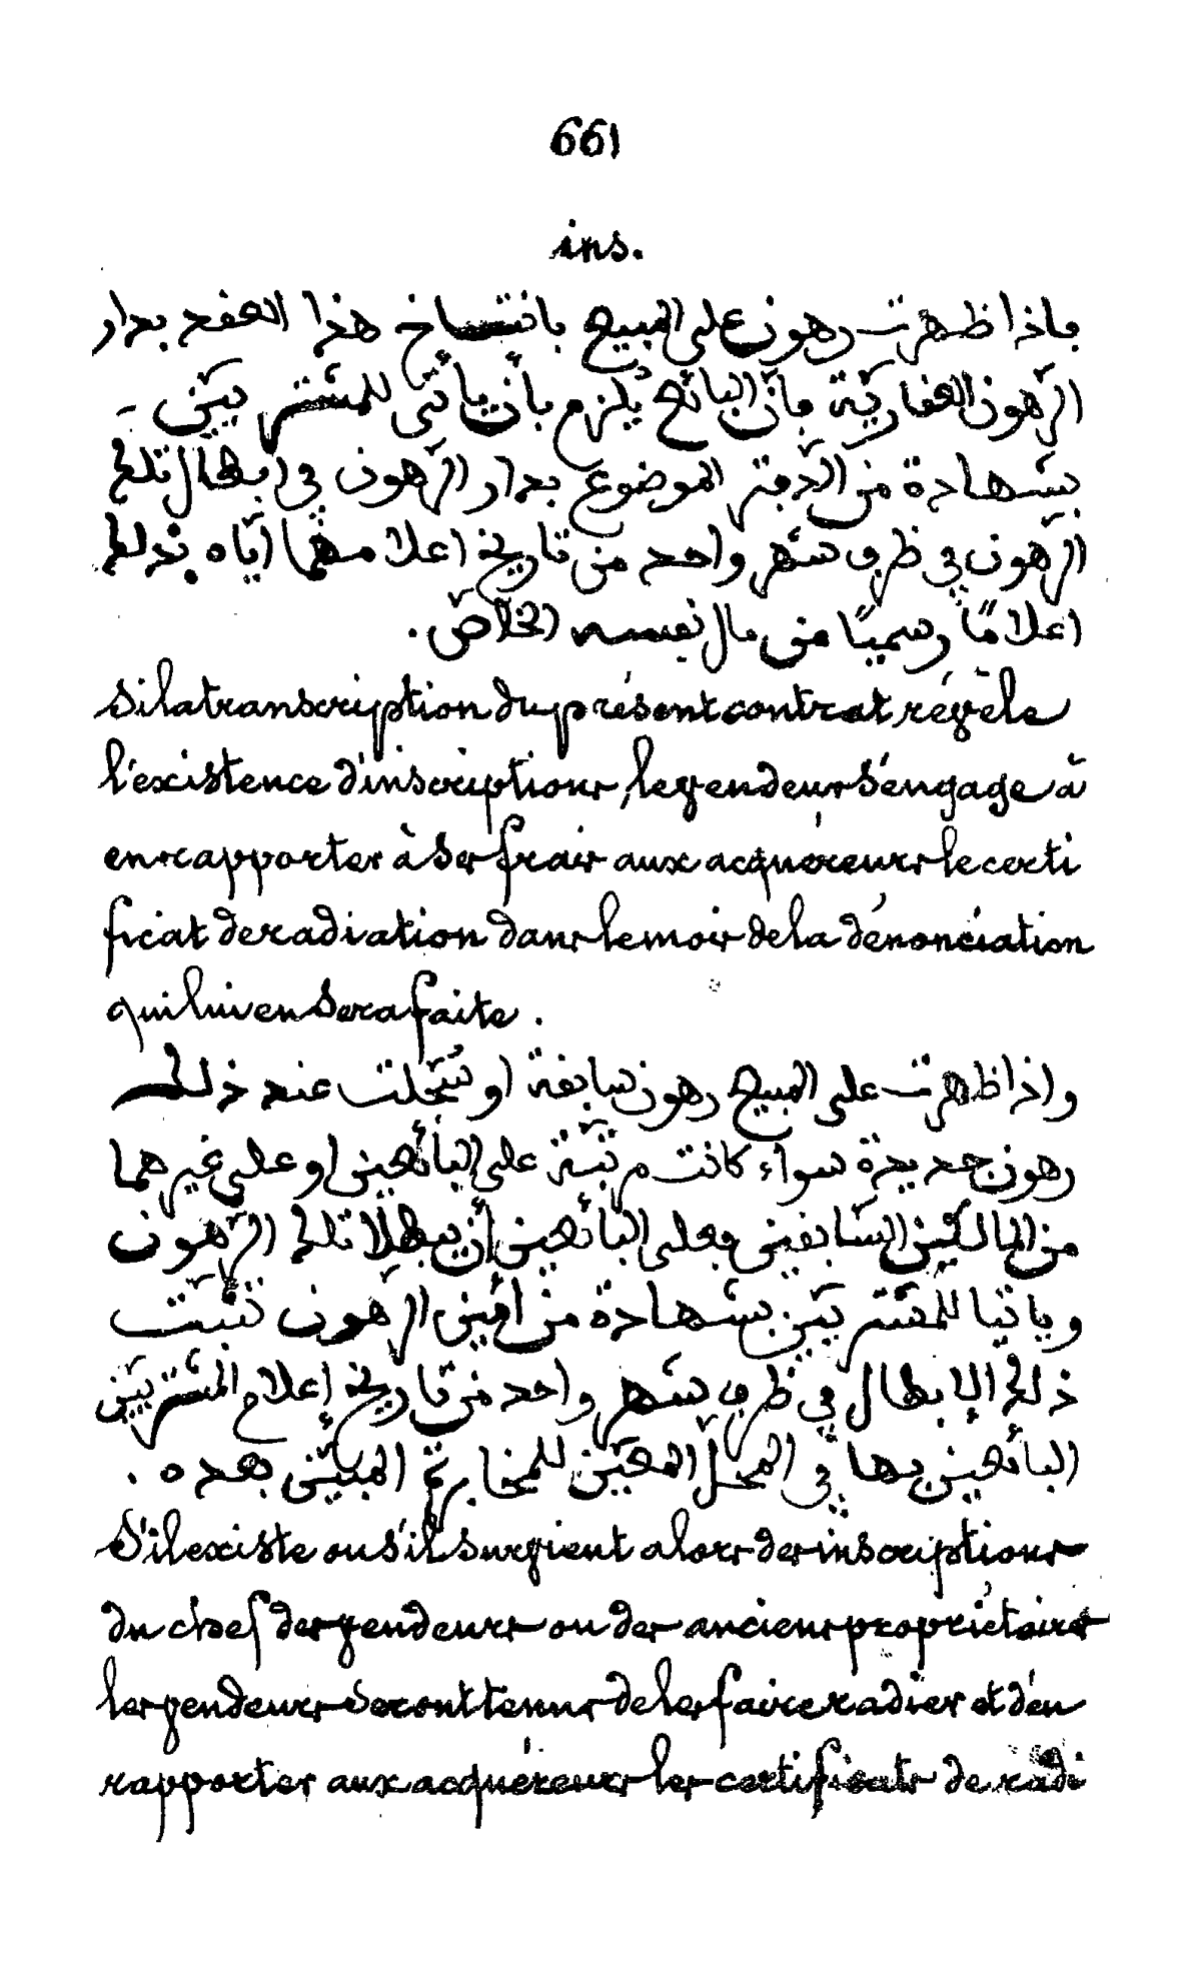 661
ins.
فإذا ظهرت رهون على المبيع بانتساخ هذا العقد بدار
الرّهون العقاريّة فإنّ البائع يُلزم بأن يأتى للمشتريَيْن -
بشهادة من الدّفتر الموضوع بدار الرّهون فى إبطال تلك
الرّهون فى ظرف شهر واحد من تاريخ اعلامهما إيّاه بذلك
اعلامًا رسميًا من مال نفسه الخاصّ .
Si la transcription du présent contrat révèle
l'existence d'inscriptions, le vendeur s'engage à
en rapporter à ses frais aux acquéreurs le certi
ficat de radiation dans le mois de la dénonciation
qui lui en sera faite .
واذا ظهرت على المبيع رهون سابقة او سُجّلت عند ذلك
رهون جديدة سواء كانت مرتّبة على البائعين او على غيرهما
من المالكين السّابقين فعلى البائعين أن يبطلا تلك الرّهون
وياتيا للمشتريَيْن بشهادة من أمين الرّهون تثبت
ذلك الإبطال فى ظرف شهر واحد من تاريخ إعلام المشتريَيْن
البائعين بها فى المحلّ المعيّن للمخابرة المبيّن بعده .
S'il existe ou s'il survient alors des inscriptions
du chef des vendeurs ou des anciens propriétaires
les vendeurs seront tenus de les faire radier et d'en
rapporter aux acquéreurs les certificats de radi